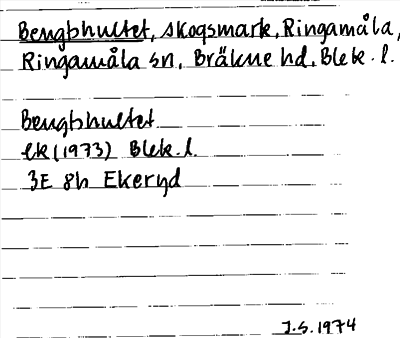 Bengbhultet, skogsmark, Ringamåla,
Ringamåla sn, Bräkne hd, Blek. l.
Bengbhultet
ek (1973) Blek. l.
3E 8h Ekeryd
J.S. 1974